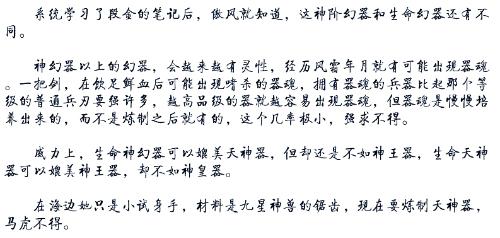 系统学习了段舍的笔记后，傲风就知道，这神阶幻器和生命幻器还有不
同。
神幻器以上的幻器，会越来越有灵性，经历风雲年月就有可能出现器魂
。一把剑，在饮足鲜血后可能出现嗜杀的器魂，拥有器魂的兵器比起那个等
级的普通兵刃要强许多，越高品级的器就越容易出现器魂，但器魂是慢慢培
养出来的，而不是炼制之后就有的，这个几率极小，强求不得。
威力上，生命神幻器可以媲美天神器，但却还是不如神王器，生命天神
器可以媲美神王器，却不如神皇器。
在海边她只是小试身手，材料是九星神兽的锯齿，现在要炼制天神器，
马虎不得。